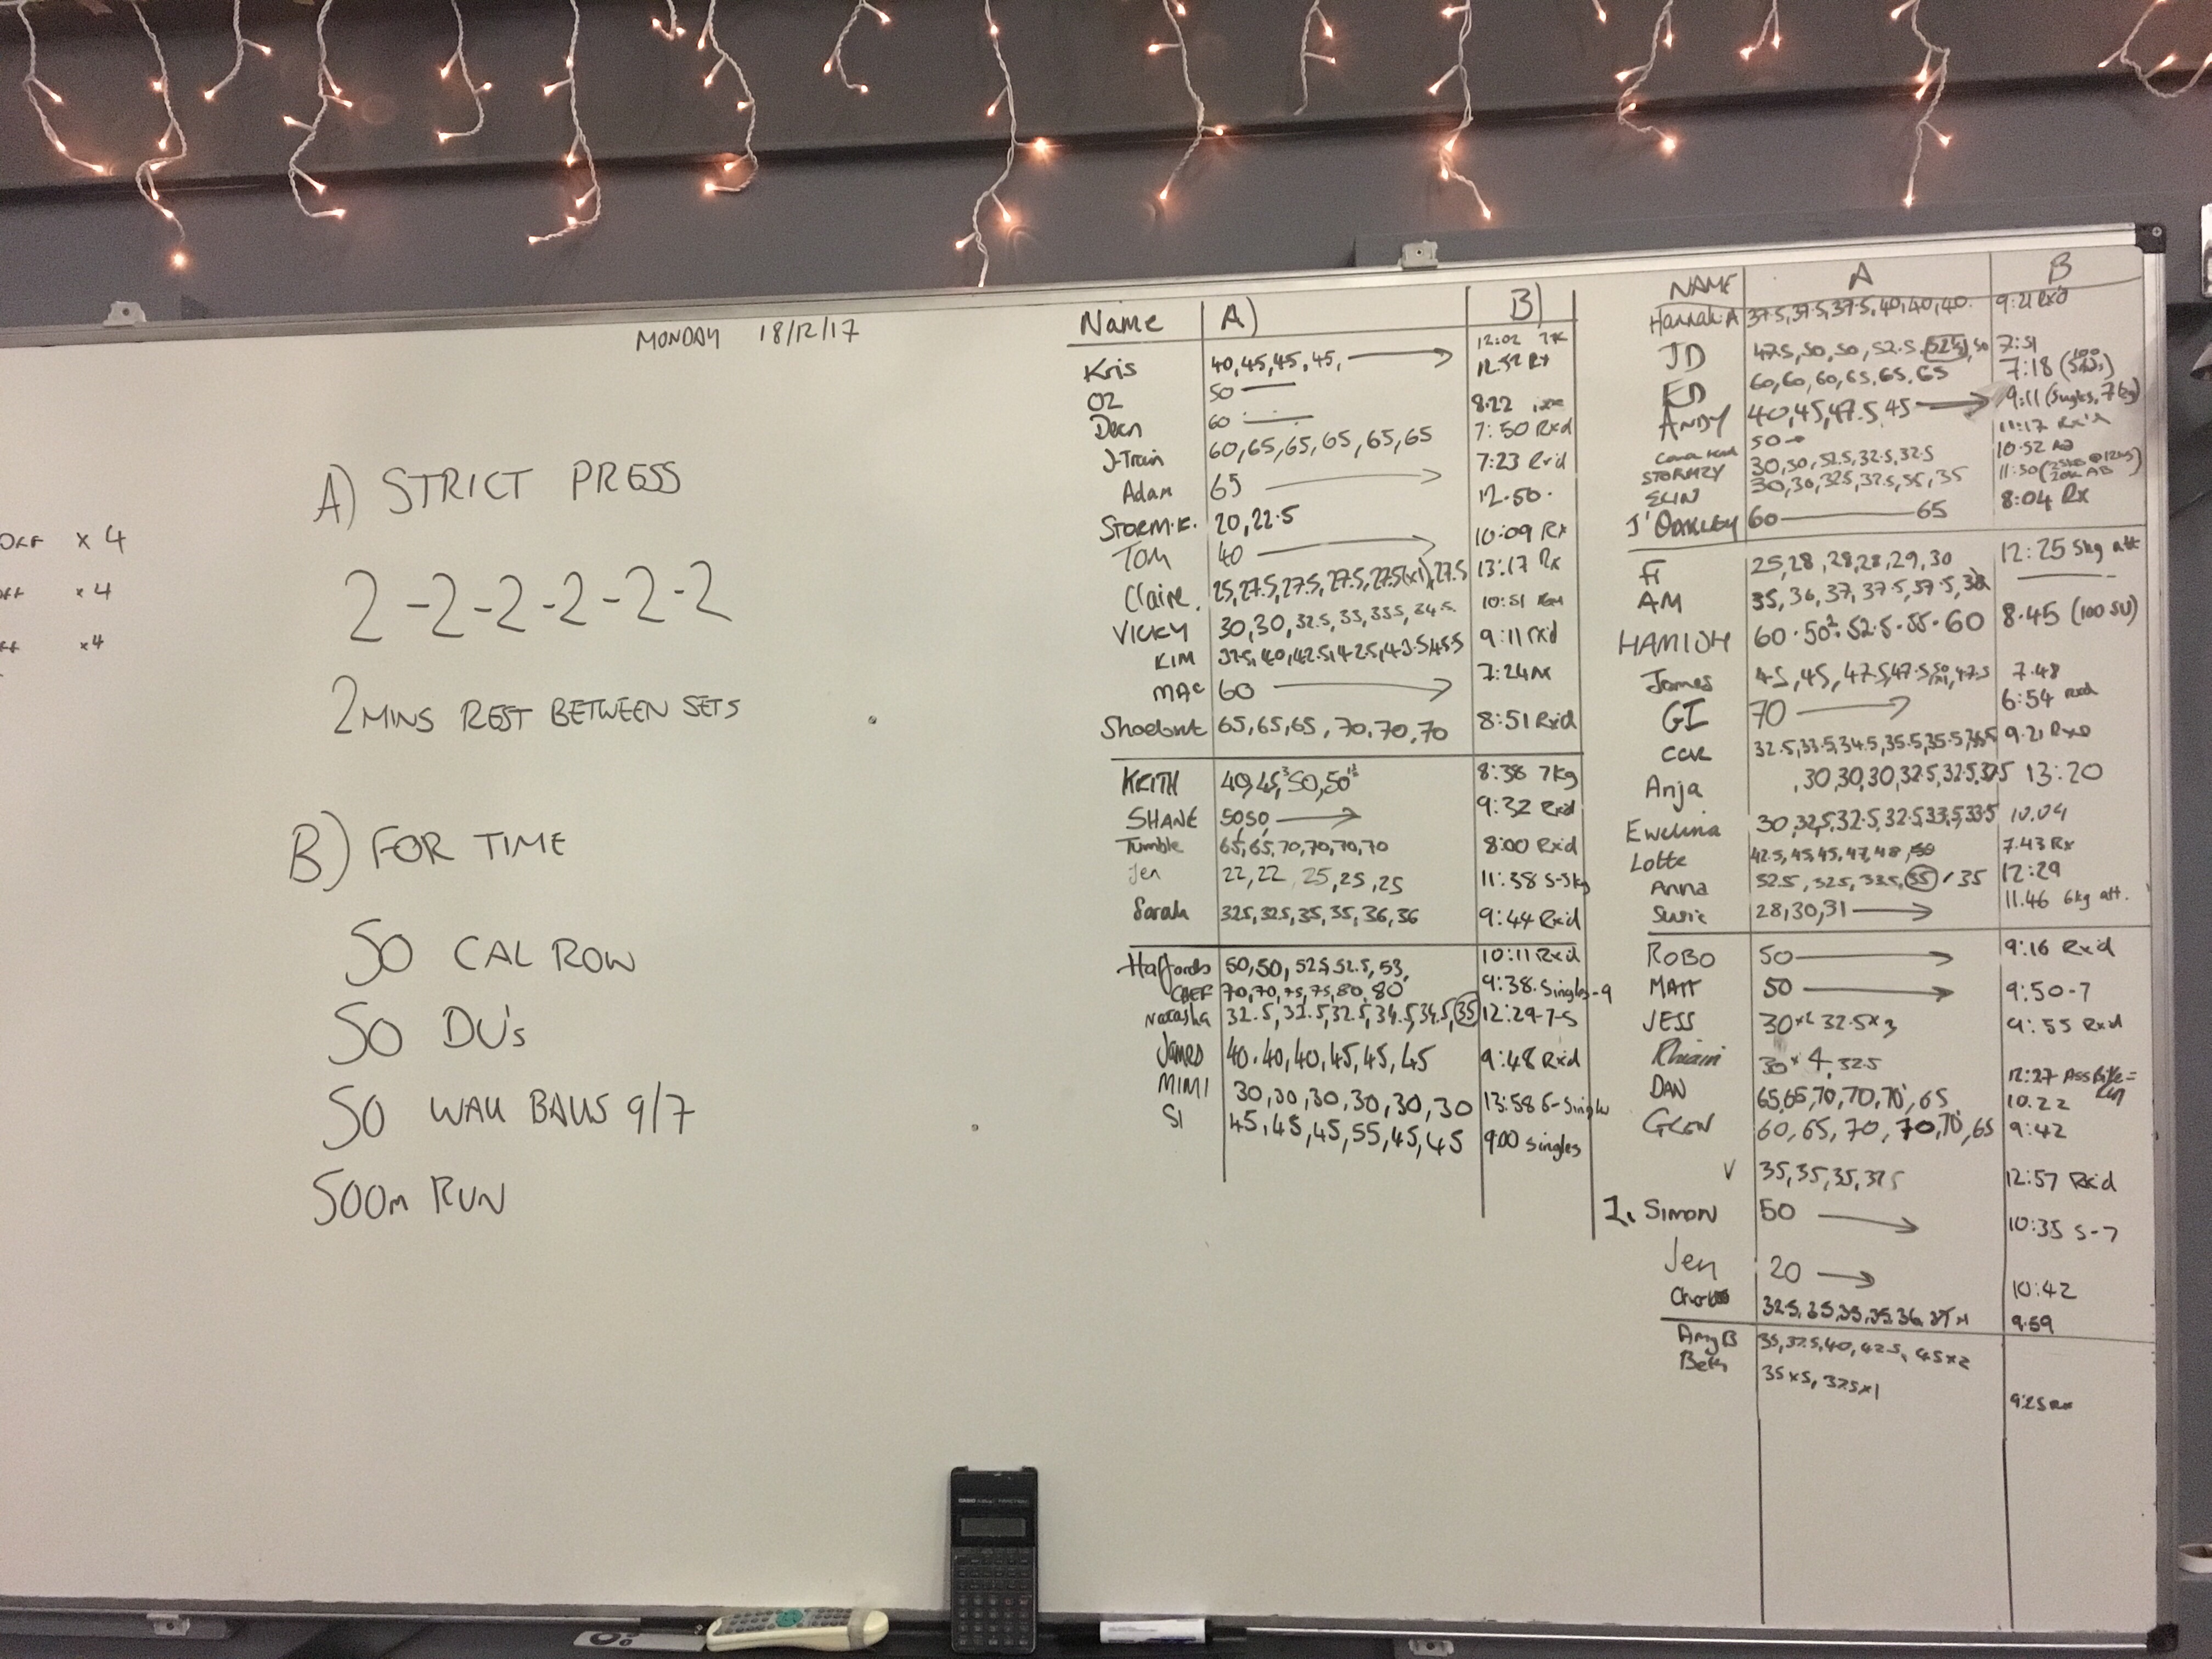 MONDAY 18/12/17
A) STRICT PRESS
2-2-2-2-2-2
2 MINS REST BETWEEN SETS
B) FOR TIME
50 CAL ROW
50 DU's
50 WALL BALLS 9/7
500m RUN
x 4
x 4
x4
Name A) B)
12:02
Kris 40,45,45,45, 12:52 Rx
OZ 50
Dean 60 8:22
J-Train 60,65,65,65,65,65 7:50 Rxd
Adam 65 7:23 Rxd
STORM.K. 20,22.5 12.50.
TOM 40 10:09 Rx
Claire. 25,27.5,27.5,27.5,27.5(x1),27.5 13:17 Rx
VICKY 30,30,32.5,33,33.5, 10:51
KIM 9:11 rxd
MAC 60 7:24
Shoebrut 65,65,65,70,70,70 8:51 Rxd
KEITH 40,45,50,50 8:38 7kg
SHANE 50,50, 9:32 Rxd
Tumble 65,65,70,70,70,70 8:00 Rxd
Jen 22,22 25,25,25 11:38 S-5kg
Sarah 32.5,32.5,35,35,36,36 9:44 Rxd
Haffords 50,50,52.5,52.5,53, 10:11 Rxd
CHEF 70,70,75,75,80,80 9:38. Singles-9
Natasha 32.5,32.5,32.5,34.5,34.5,35 12:29-7-S
James 40.40,40,45,45,45 9:48 Rxd
MIMI 30,30,30,30,30,30 13:58 6-Singles
SI 45,45,45,55,45,45 9:00 singles
NAME A B
Hannah A 37.5,37.5,37.5,40,40,40. 9:21 Rxd
JD 47.5,50,50,52.5,52.5,50 7:51
ED 60,60,60,65,65,65 7:18 (100 SU's)
ANDY 40,45,47.5,45 9:11 (Singles, 7kg)
50 11:17 Rx'd
STORMZY 30,30,32.5,32.5,32.5 10:52
ELIN 30,30,32.5,32.5,35,35 11:50
J'OAKLEY 60 65 8:04 Rx
Fi 25,28,28,28,29,30 12:25 5kg att
AM 35,36,37,37.5,37.5,38
HAMISH 60.50.52.5.55.60 8.45 (100 SU)
James 45,45,47.5,47.5,50,47.5 7.48
GI 70 6:54 rxd
32.5,33.5,34.5,35.5,35.5, 9.21 Rxd
Anja ,30,30,30,32.5,32.5,37.5 13:20
Ewelina 30,32.5,32.5,32.5,33.5,33.5 10.04
Lotte 42.5,45,45,47,48,50 7.43 Rx
Anna 32.5,32.5,33.5,35,35 12:29
Susie 28,30,31 11.46 6kg att.
ROBO 50 9:16 Rxd
MATT 50 9:50-7
JESS 30x2 32.5x3 9:55 Rxd
30x4, 32.5
DAN 65,65,70,70,70,65 12:27 Ass Bike = Run
GLEN 60,65,70,70,70,65 10.22
9:42
V 35,35,35,37.5 12:57 Rxd
1. SIMON 50 10:35 S-7
Jen 20 10:42
9.59
Amy B 35,37.5,40,42.5, 45x2
Beth 35x5, 32.5x1
9:25 Rx